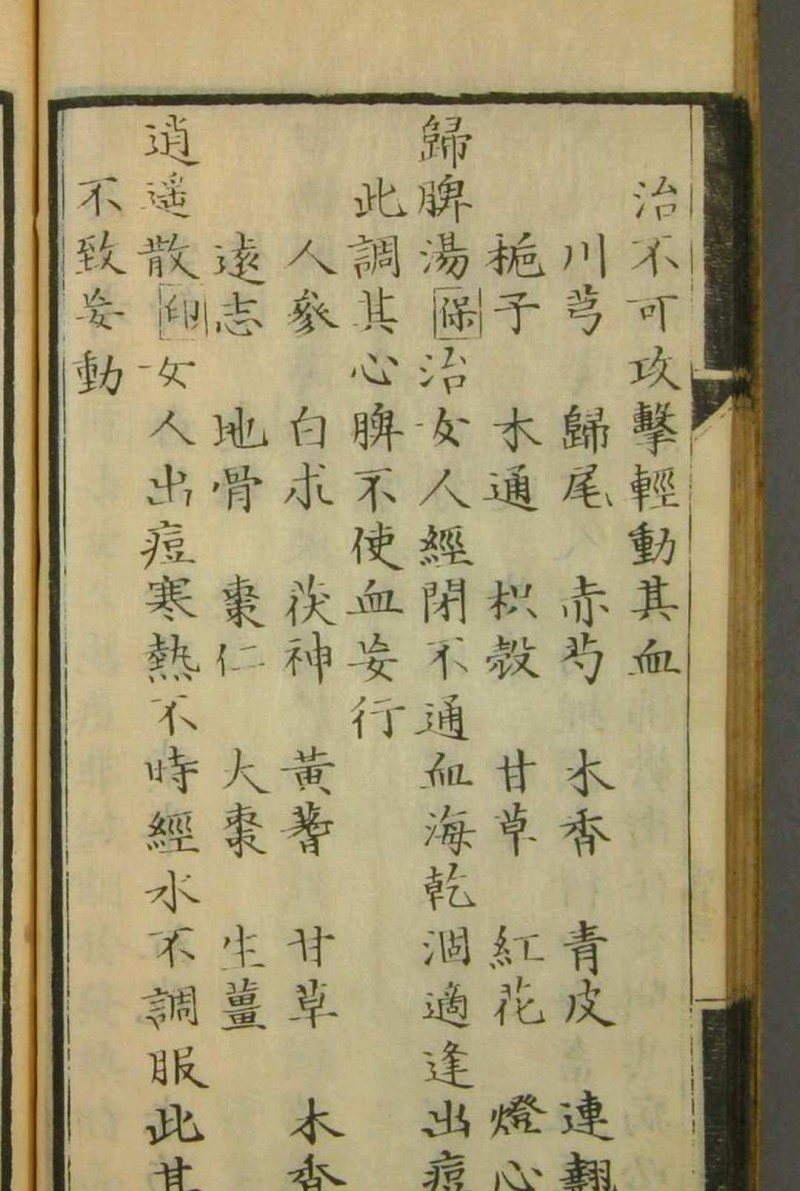 治不可攻擊輕動其血
川芎 歸尾 赤芍 木香 青皮 連翹
梔子 木通 枳殼 甘草 紅花 燈心
歸脾湯保治女人經閉不通血海乾涸適逢出痘
此調其心脾不使血妄行
人參 白朮 茯神 黃蓍 甘草 木香
遠志 地骨 棗仁 大棗 生薑
逍遥散卬女人出痘寒熱不時經水不調服此其
不致妄動